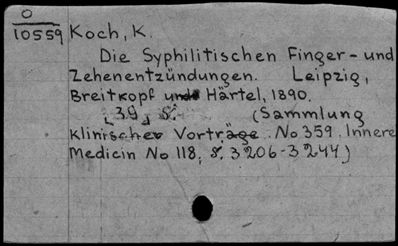 O
10559 Koch, K.
Die Syphilitischen Finger- und
Zehenentzündungen. Leipzig,
Breitkopf und Härtel, 1890.
[39] S. (Sammlung
Klinischer Vorträge. No 359. Innere
Medicin No 118; S. 3206-3244)